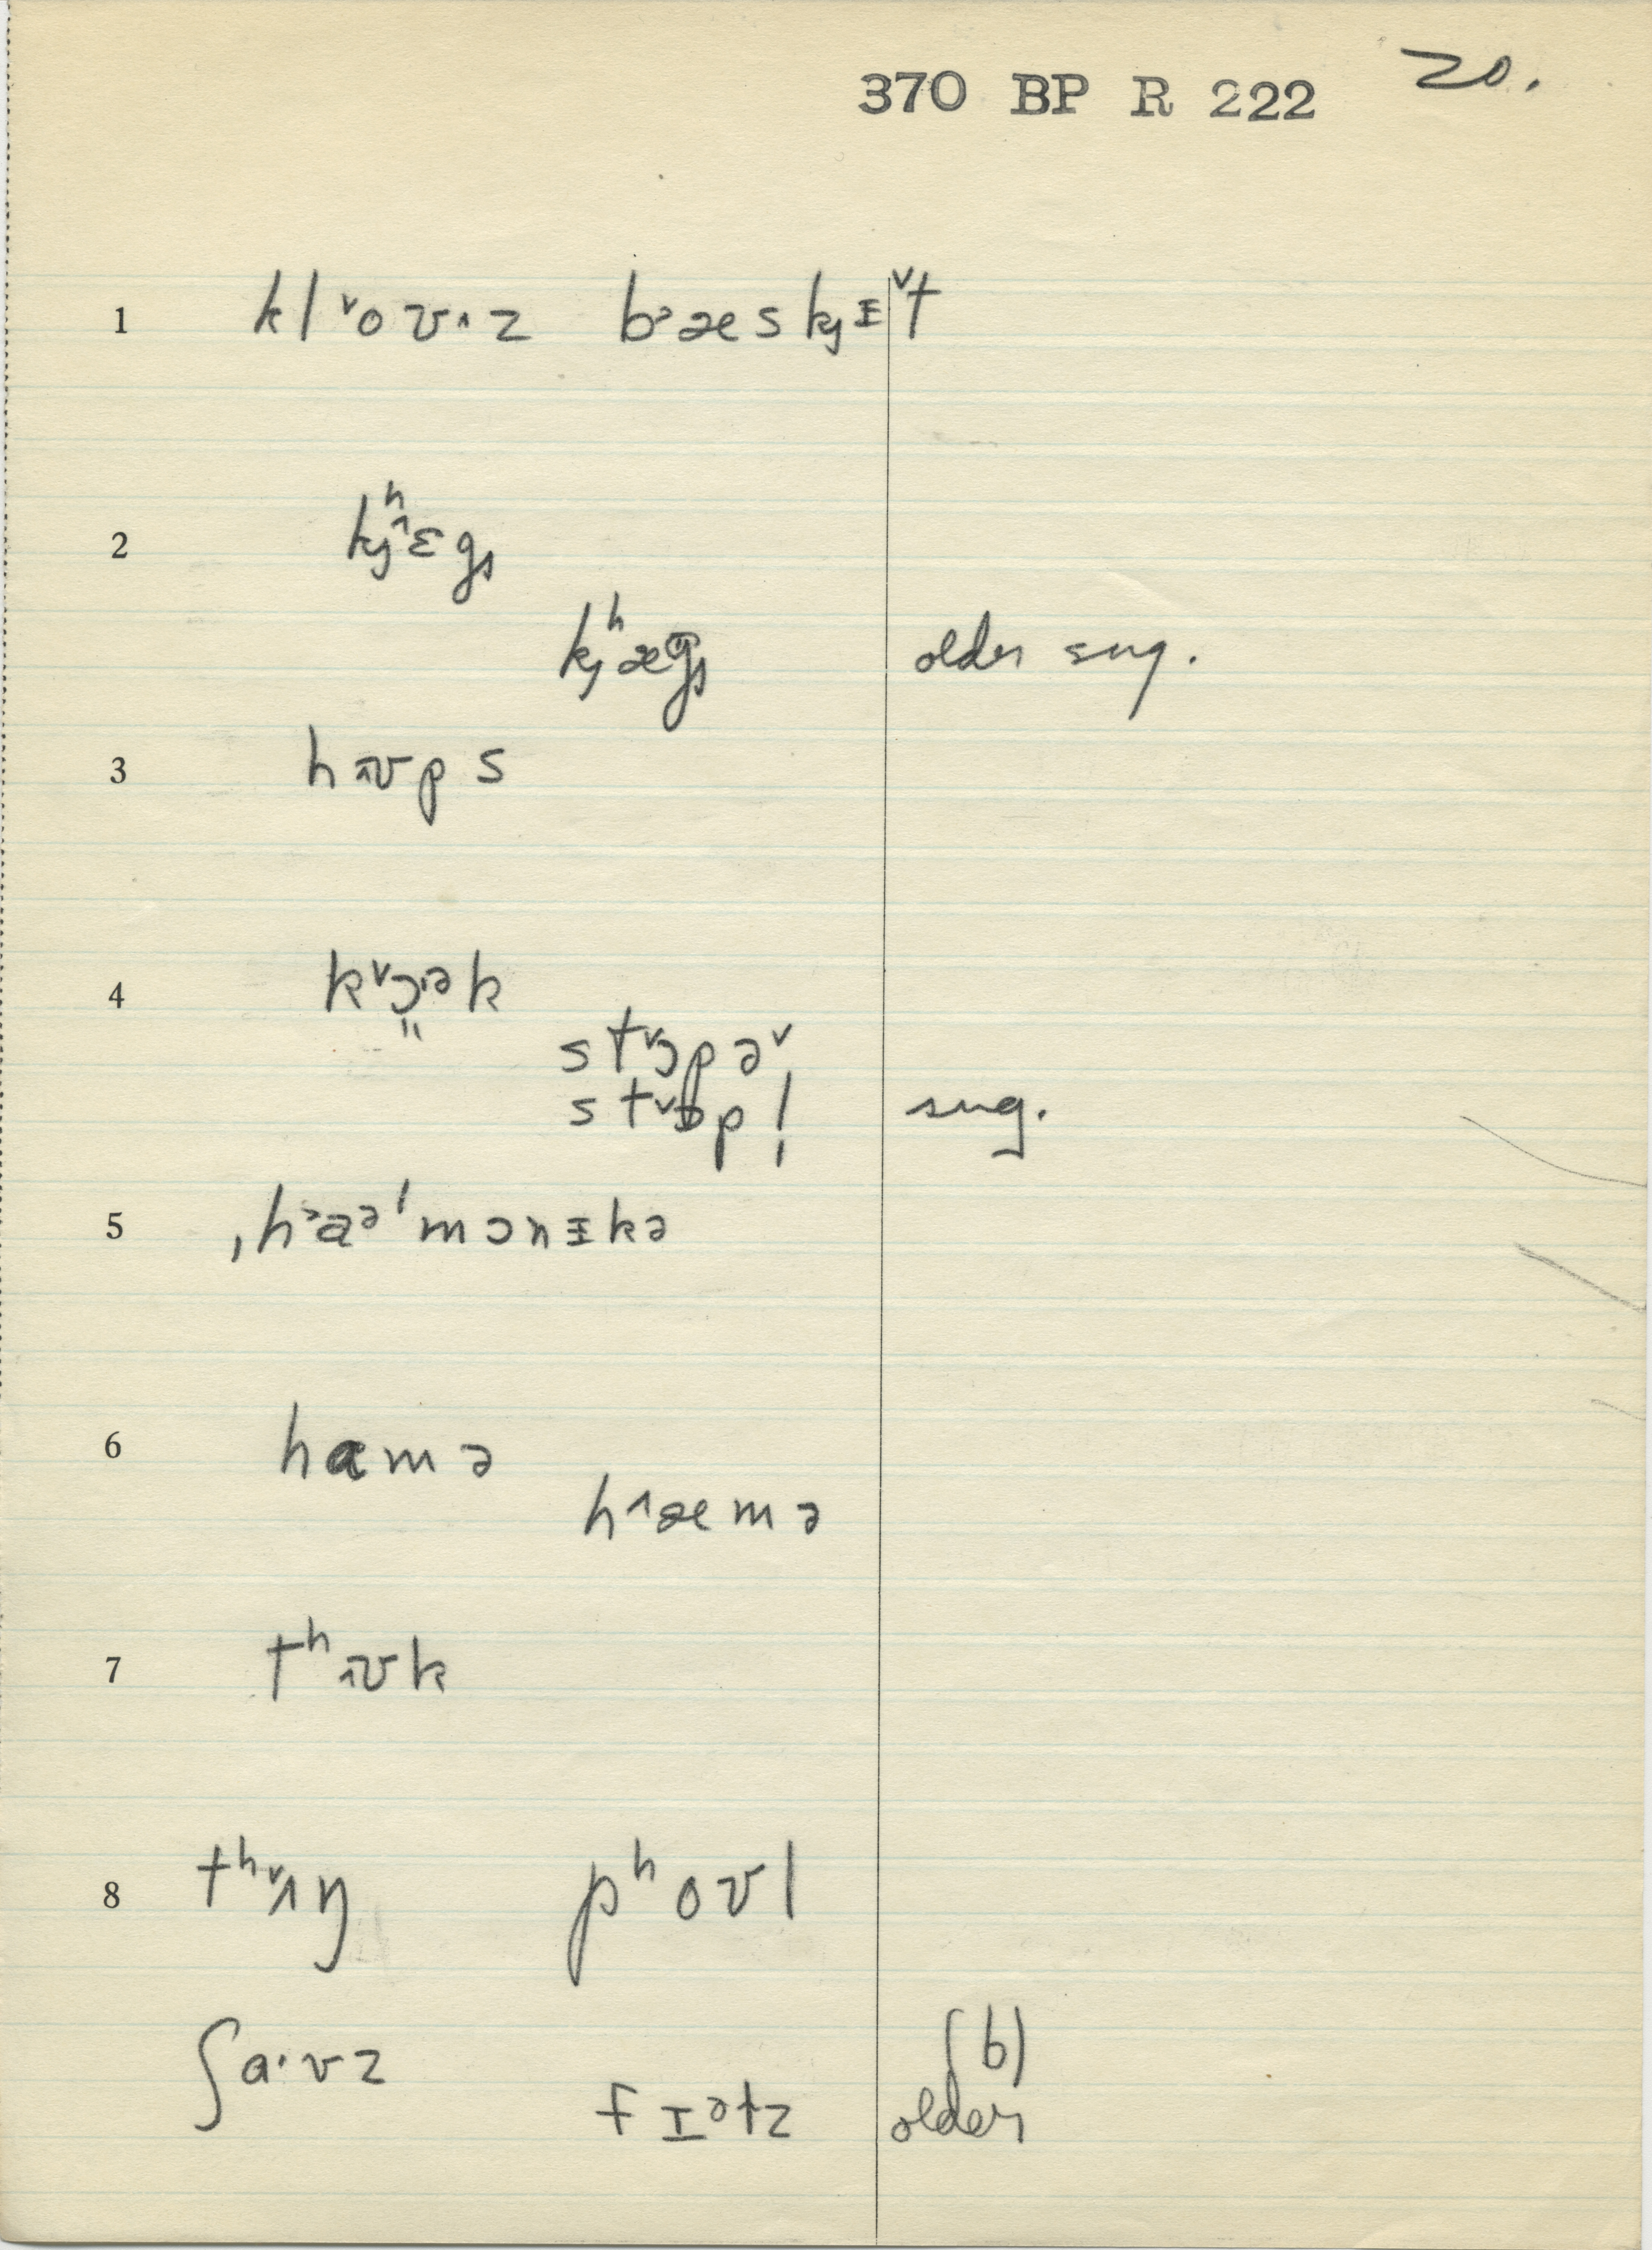 370 BP R 222 20.
1 kl˅oʊ·z b˃æskjɪ˅t
2 kjʰ˄ɛgs
kjʰægs older sug.
3 hʌʊps
4 k˅ɔək
st˅ɔpə˅
st˅ɒp! sug.
5 ˌh˃aᵊˈmɔnɪkə
6 hamə
h˄æmə
7 tʰʌʊk
8 tʰ˅ʌŋ pʰoʊl
ʃa·ʊz (b)
fɪᵊtz older